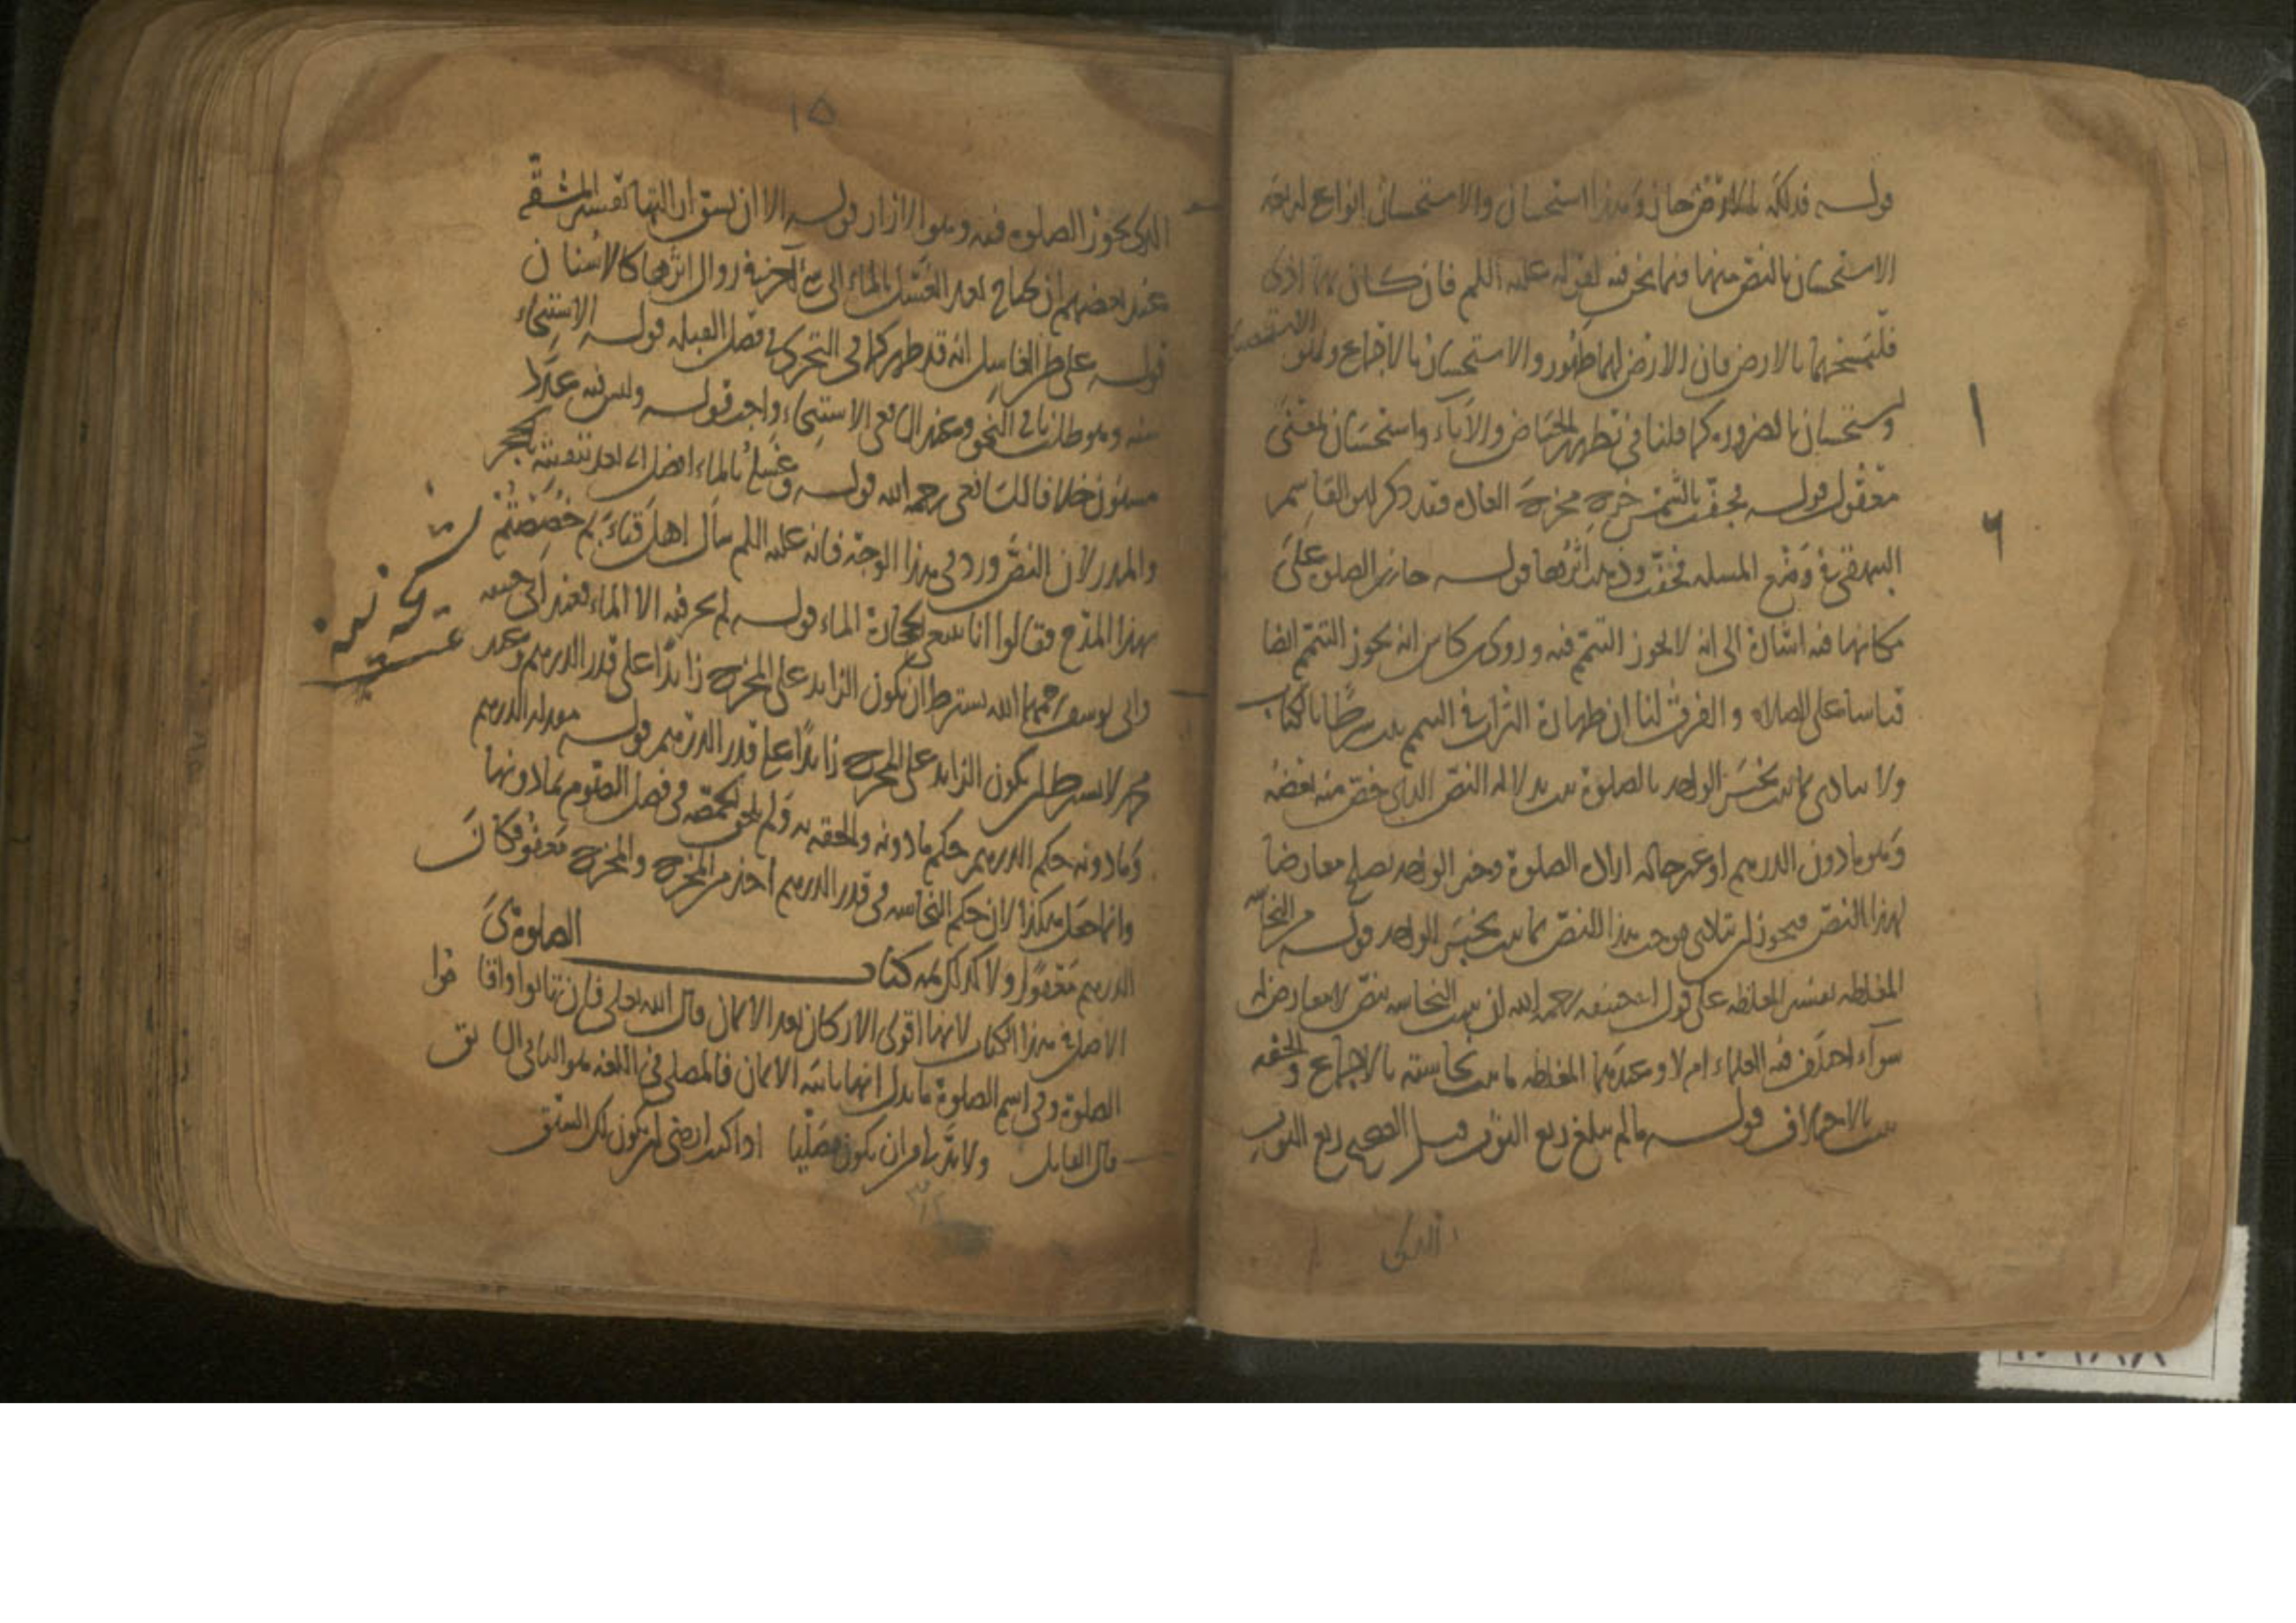 قوله فدلكه بالارض جاز وهذا استحسان والاستحسان انواع اربعة
الاستحسان بالنص منها وفيما نحن فيه لقوله عليه السلم فان كان بهما اذى
فليمسحهما بالارض فان الارض لهما طهور والاستحسان بالاجماع وهو الاستصناع
واستحسان بالضرورة كما قلنا في تطهير الحياض والآباء واستحسان لمعنى
معقول قوله فجفت بالشمس خرج مخرج العادة فقد ذكر ابو القاسم
البيهقي في وضع المسئلة فجفت وذهب اثرها قوله جازت الصلوة على
مكانها فيه اشارة الى انه لا يجوز التيمم فيه وروى ابن كاس انه يجوز التيمم ايضا
قياسا على الصلاة والفرق لنا ان طهارة التراب في التيمم ثبت شرطا بالكتاب
ولا يتادى بما ثبت بخبر الواحد بالصلوة ثبت بدلالة النص الذي خص منه بعضه
وهو ما دون الدرهم او غير حالة اراده الصلوة وخبر الواحد يصلح معارضا
لهذا النص فيجوز ان يتادى موجب هذا النص بما ثبت بخبر الواحد قوله من النجاسة
المغلظة تفسير المغلظة على قول ابي حنيفة رحمه الله ان يثبت النجاسة بنص لا معارض له
سوآء اختلف فيه العلماء ام لا وعندهما المغلظة ما ثبت نجاسته بالاجماع والخفيفة
ثبت بالاختلاف قوله ما لم يبلغ ربع الثوب قيل الصحيح ربع الثوب
الذي
١٥
الذي يجوز الصلوة فيه وهو الازار قوله الا ان يشق ازالتها تفسير المشقة
عند بعضهم ان يحتاج بعد الغسل بالماء الى شئ آخر في زوال اثرها كالاشنان
قوله على ظن الغاسل انه قد طهر كما في التحري في فصل القبلة قوله الاستنجاء
سنة وهو طلب باقي النجو وعند الشافعي الاستنجاء واجب قوله وليس فيه عدد
مسنون خلافا للشافعي رحمه الله قوله وغسله بالماء افضل اى بعد تنقيته بالحجر
والمدر لان النص ورد في هذا الوجه فانه عليه السلم سأل اهل قباء بم خصصتم
بهذا المدح فقالوا انا نتبع الحجارة الماء قوله لم يجز فيه الا الماء فعند ابي حنيفة
وابي يوسف رحمهما الله يشترط ان يكون الزايد على المخرج زايدا على قدر الدرهم وعند
محمد لا يشترط ان يكون الزايد على المخرج زايدا على قدر الدرهم قوله
وما دونه حكم الدرهم حكم ما دونه والحقه به ولم يلحق الحمصة في فصل الصوم بما دونها
وانما جعل هكذا لان حكم النجاسة في قدر الدرهم اخذ من المخرج والمخرج معفو فكان
الدرهم معفوا ولا كذلك ثمه كتاب الصلوة هي
الاصل في هذا الكتاب لانها اقوى الاركان بعد الايمان قال الله تعالى فان تابوا واقاموا
الصلوة وفي اسم الصلوة ما يدل انها ثانية الايمان فالمصلي في اللغة هو التالي السابق
قال القايل ولا بد لي من ان يكون مصليا اذا كنت ارضى ان يكون لك السبق